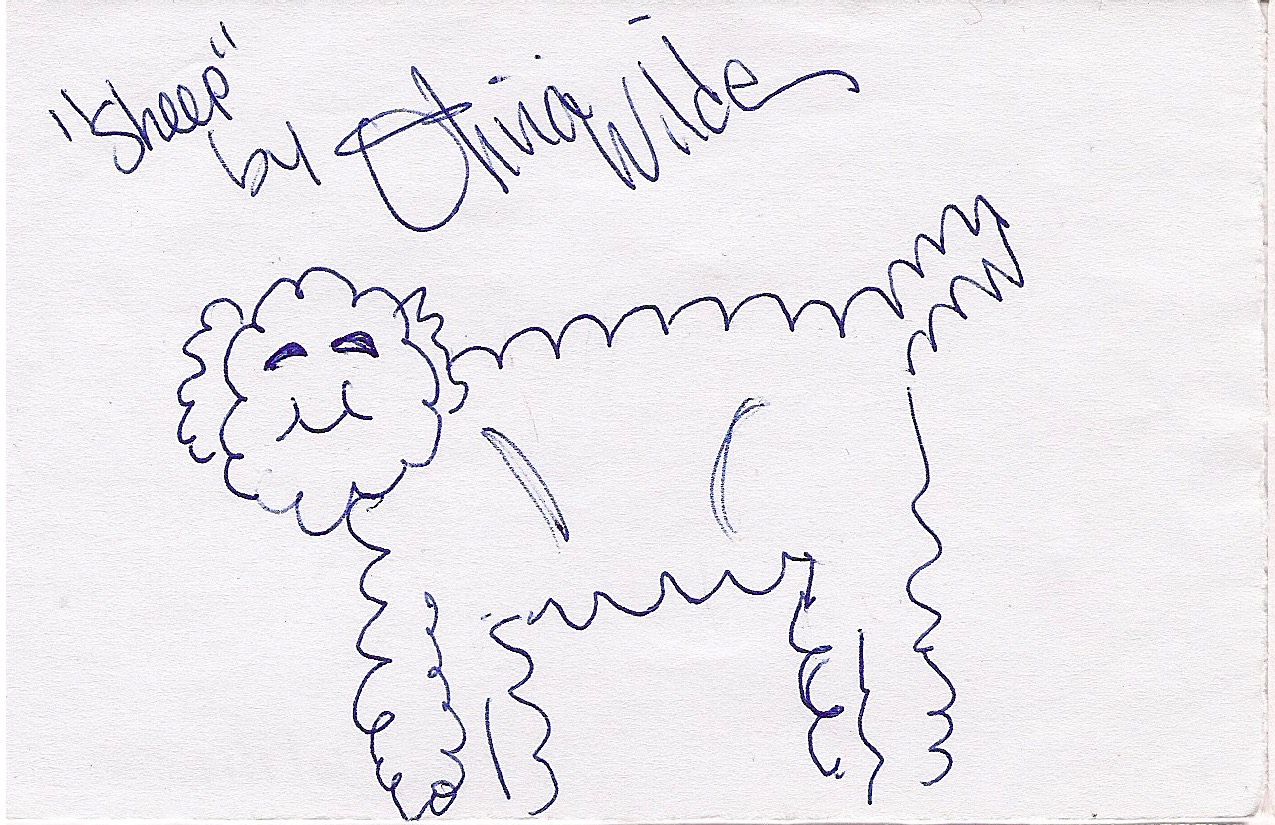 "Sheep"
by Olivia Wilde